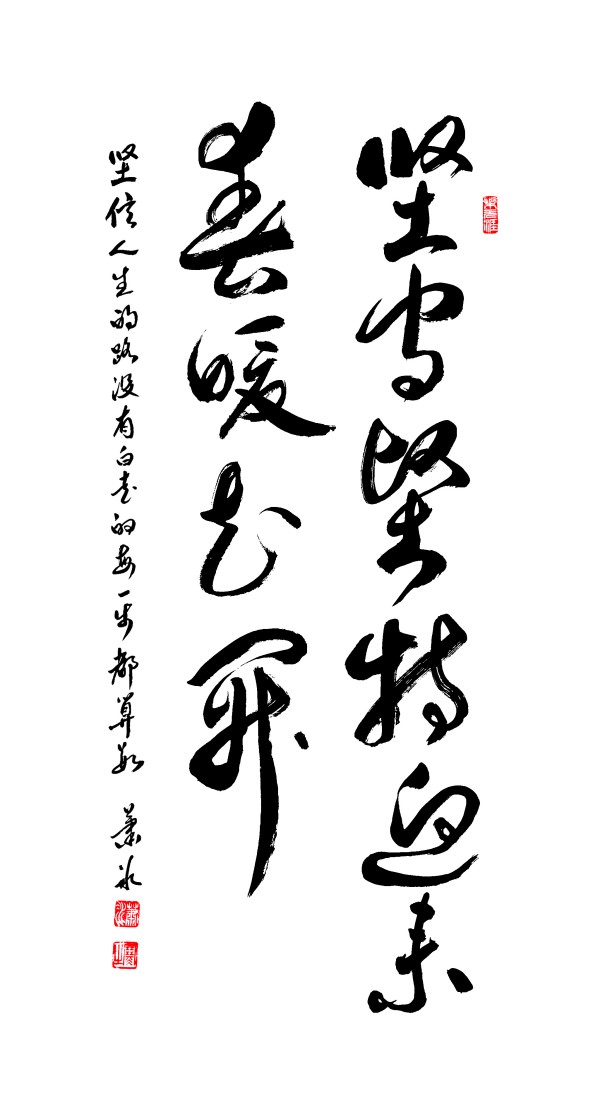 坚守坚持迎来
春暖花開
坚信人生的路没有白走的每一步都算数 萧冰